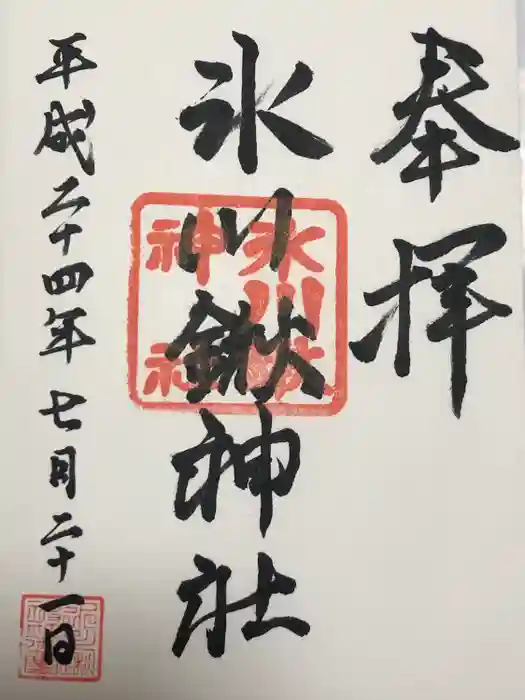 奉拝
氷川鍬神社
氷川鍬
神社
平成二十四年七月二十一日